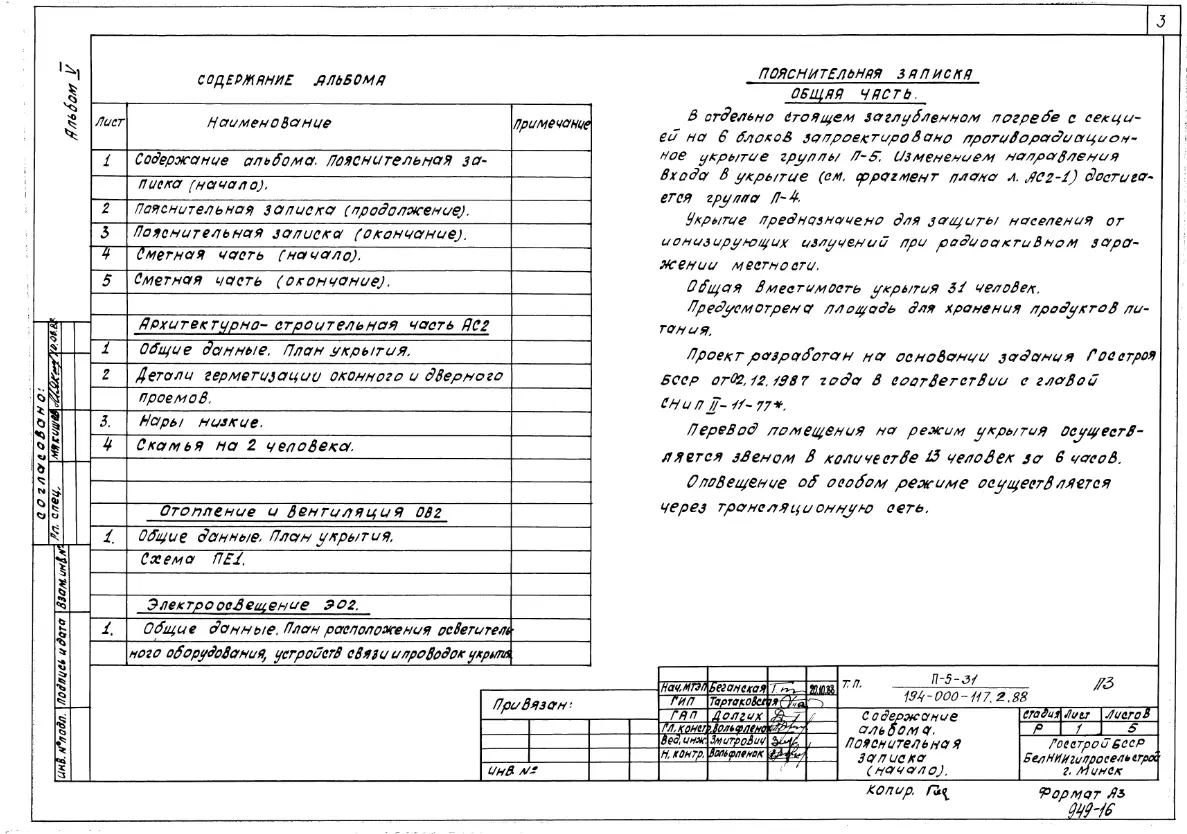 3
Альбом V
СОДЕРЖАНИЕ АЛЬБОМА
Лист Наименование Примечание
1 Содержание альбома. Пояснительная за-
писка (начало).
2 Пояснительная записка (продолжение).
3 Пояснительная записка (окончание).
4 Сметная часть (начало).
5 Сметная часть (окончание).
Архитектурно-строительная часть АС2
1 Общие данные. План укрытия.
2 Детали герметизации оконного и дверного
проемов.
3. Нары низкие.
4 Скамья на 2 человека.
Отопление и вентиляция ОВ2
1. Общие данные. План укрытия.
Схема ПЕ1.
Электроосвещение ЭО2.
1. Общие данные. План расположения осветитель-
ного оборудования, устройств связи и проводок укрытия
ПОЯСНИТЕЛЬНАЯ ЗАПИСКА
ОБЩАЯ ЧАСТЬ.
В отдельно стоящем заглубленном погребе с секци-
ей на 6 блоков запроектировано противорадиацион-
ное укрытие группы П-5. Изменением направления
входа в укрытие (см. фрагмент плана л. АС2-1) достига-
ется группа П-4.
Укрытие предназначено для защиты населения от
ионизирующих излучений при радиоактивном зара-
жении местности.
Общая вместимость укрытия 31 человек.
Предусмотрена площадь для хранения продуктов пи-
тания.
Проект разработан на основании задания Госстроя
БССР от 02.12.1987 года в соответствии с главой
СНиП II-11-77*.
Перевод помещения на режим укрытия осуществ-
ляется звеном в количестве 13 человек за 6 часов.
Оповещение об особом режиме осуществляется
через трансляционную сеть.
Согласовано:
Гл. спец. Мякишев 10.08.88
Взам.инв.№
Подпись и дата
Инв.№подл.
Привязан:
Инв. №
Нач.МТЭП Беганская 20.10.88
ГИП Тартаковская
ГАП Долгих
Гл.констр. Вольфпенок
Вед.инж. Змитрович
Н.контр. Вольфпенок
Т.П. П-5-31
194-000-117.2.88
ПЗ
Содержание
альбома.
Пояснительная
записка
(начало).
Стадия Лист Листов
Р 1 5
Госстрой БССР
БелНИИгипросельстрой
г. Минск
Копир.
Формат А3
949-16